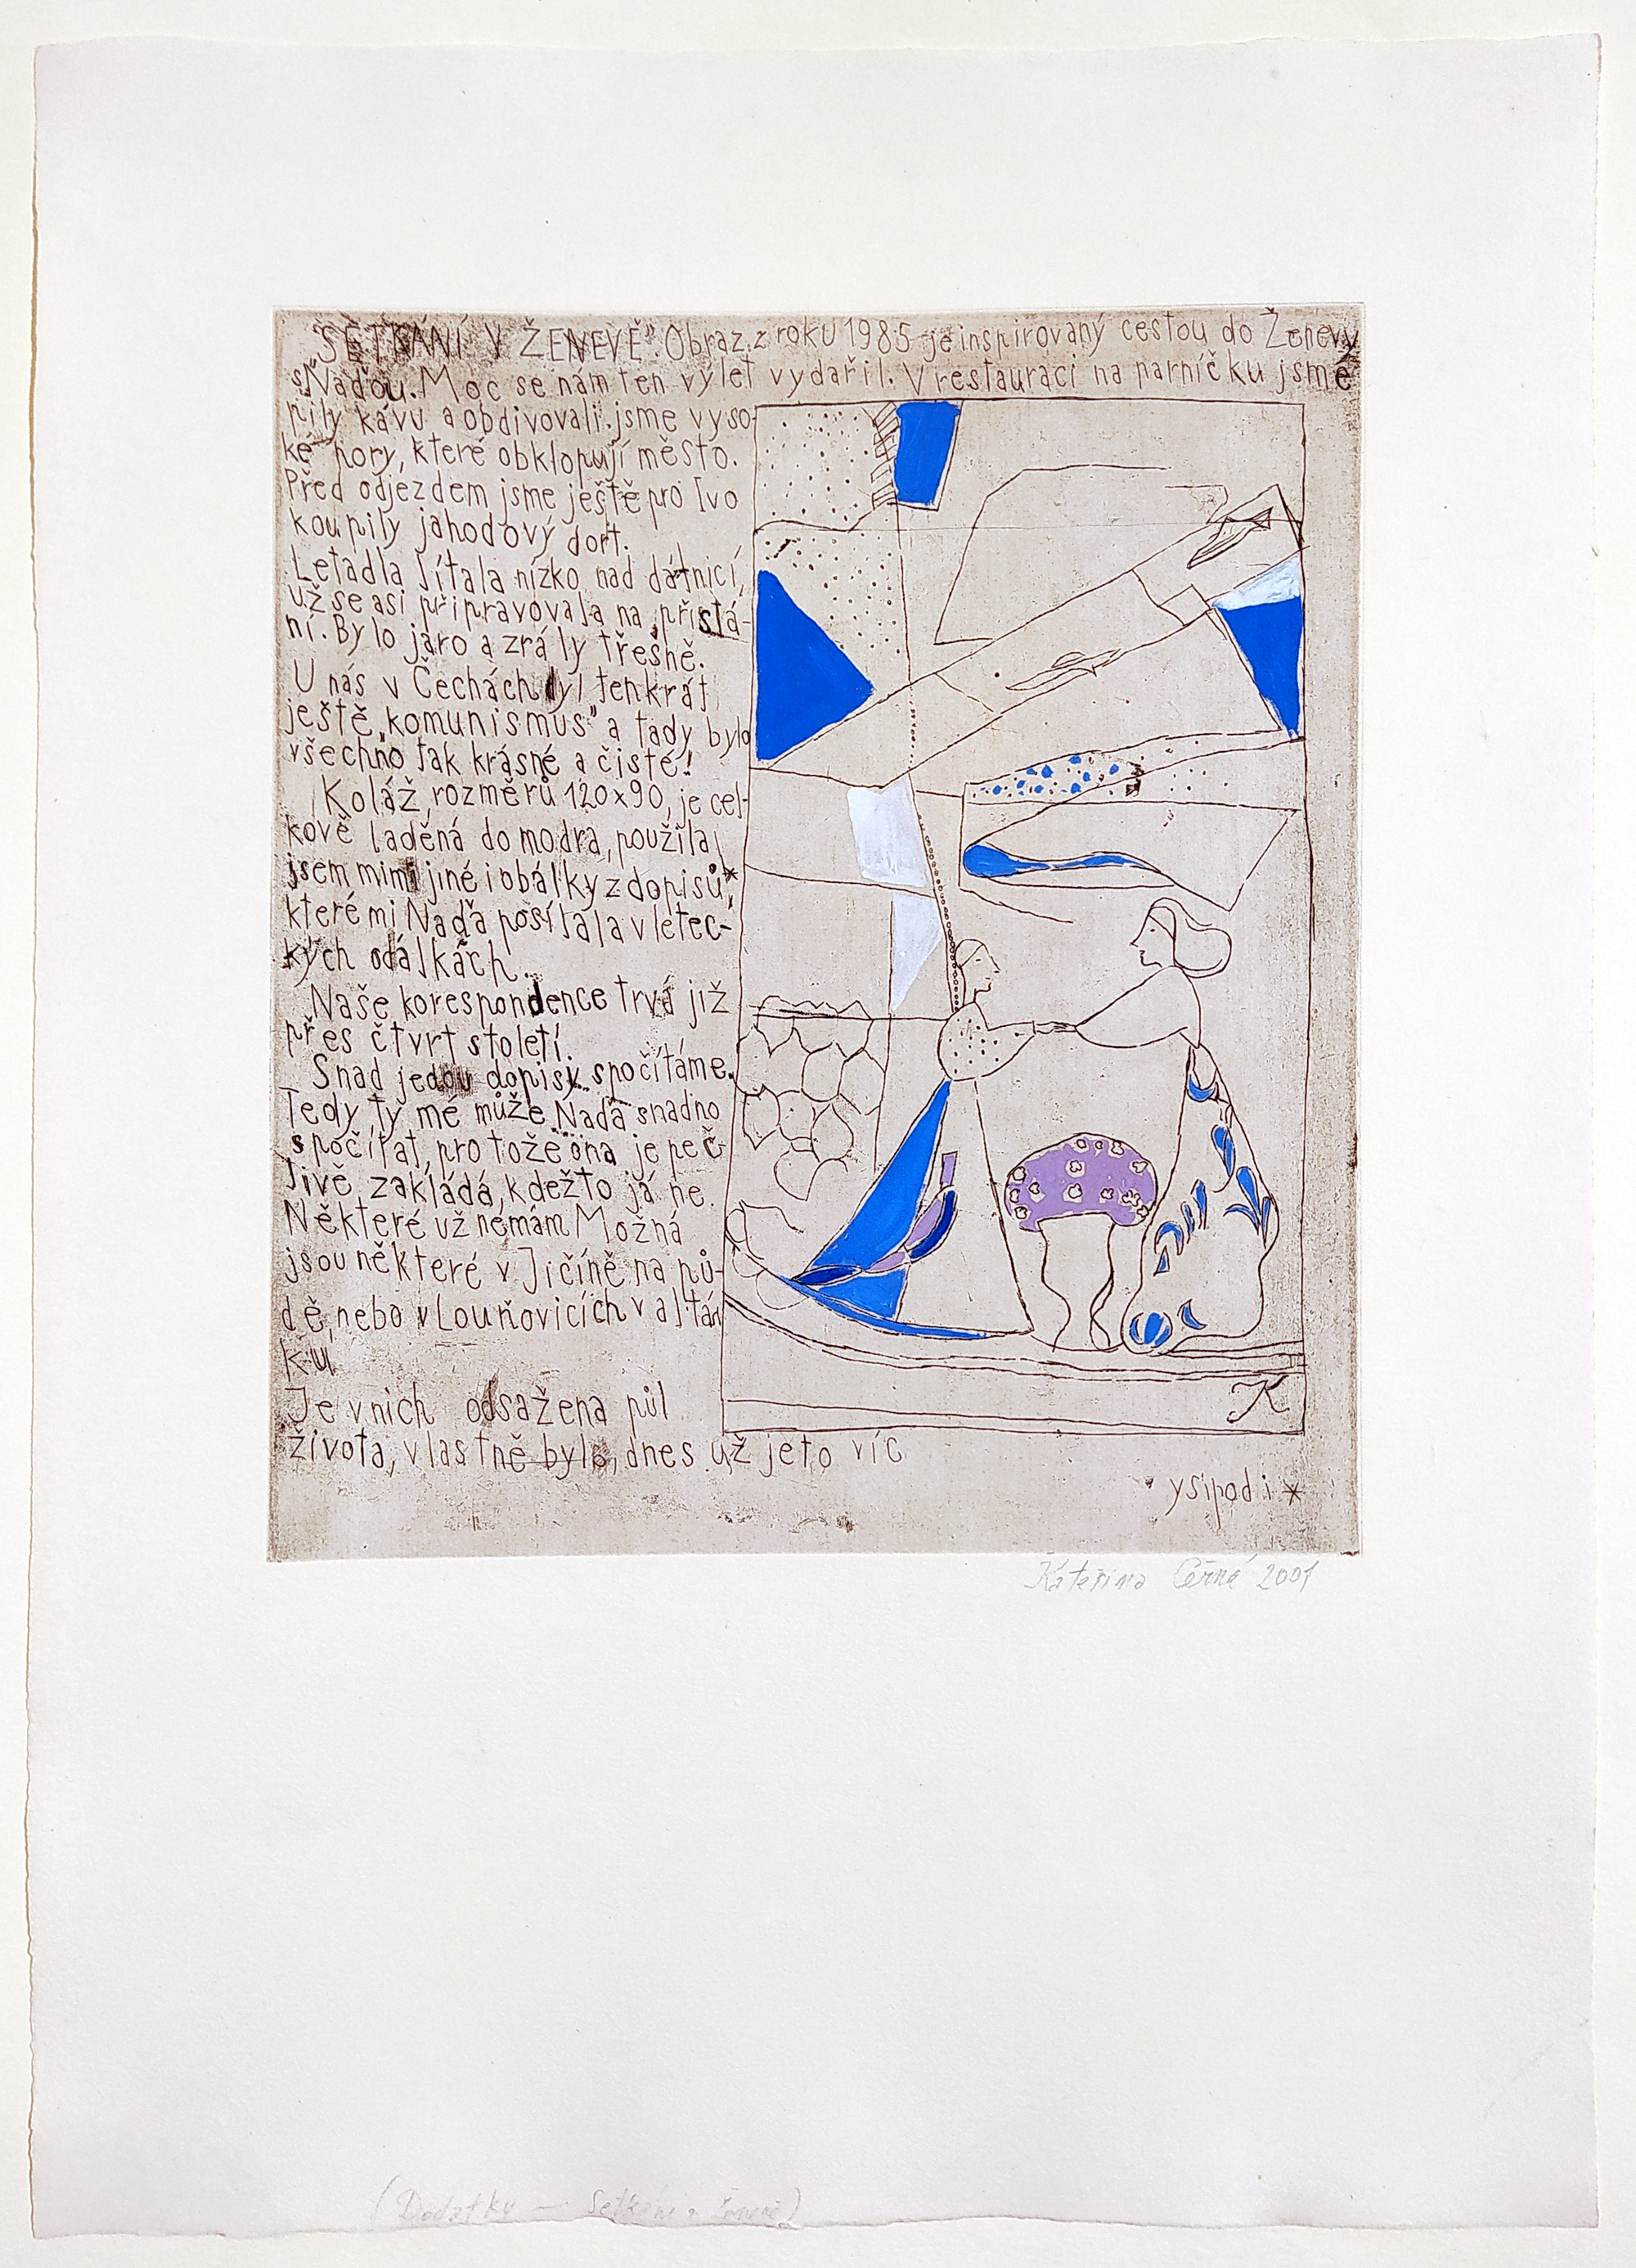 "SETKÁNÍ V ŽENEVĚ". Obraz z roku 1985 je inspirovaný cestou do Ženevy
s Naďou. Moc se nám ten výlet vydařil. V restauraci na parníčku jsme
pily kávu a obdivovali jsme vyso-
ké hory, které obklopují město.
Před odjezdem jsme ještě pro Ivo
koupily jahodový dort.
Letadla lítala nízko nad dálnicí,
už se asi připravovala na přistá-
ní. Bylo jaro a zrály třešně.
U nás v Čechách byl tenkrát
ještě „komunismus" a tady bylo
všechno tak krásné a čisté!
Koláž, rozměrů 120x90, je cel-
kově laděná do modra, použila
jsem mimi jiné i obálky z dopisů*,
které mi Naďa posílala v letec-
kých obálkách.
Naše korespondence trvá již
přes čtvrt století.
Snad jednou dopisy spočítáme.
Tedy ty mé může Naďa snadno
spočítat, protože ona je peč-
livě zakládá, kdežto já ne.
Některé už nemám Možná
jsou některé v Jičíně na pů-
dě, nebo v Louňovicích v altán
ku
Je v nich obsažena půl
života, vlastně bylo, dnes už je to víc
K
ysipod i *
Kateřina Černá 2001
(Dodatky — Setkání v Ženevě)